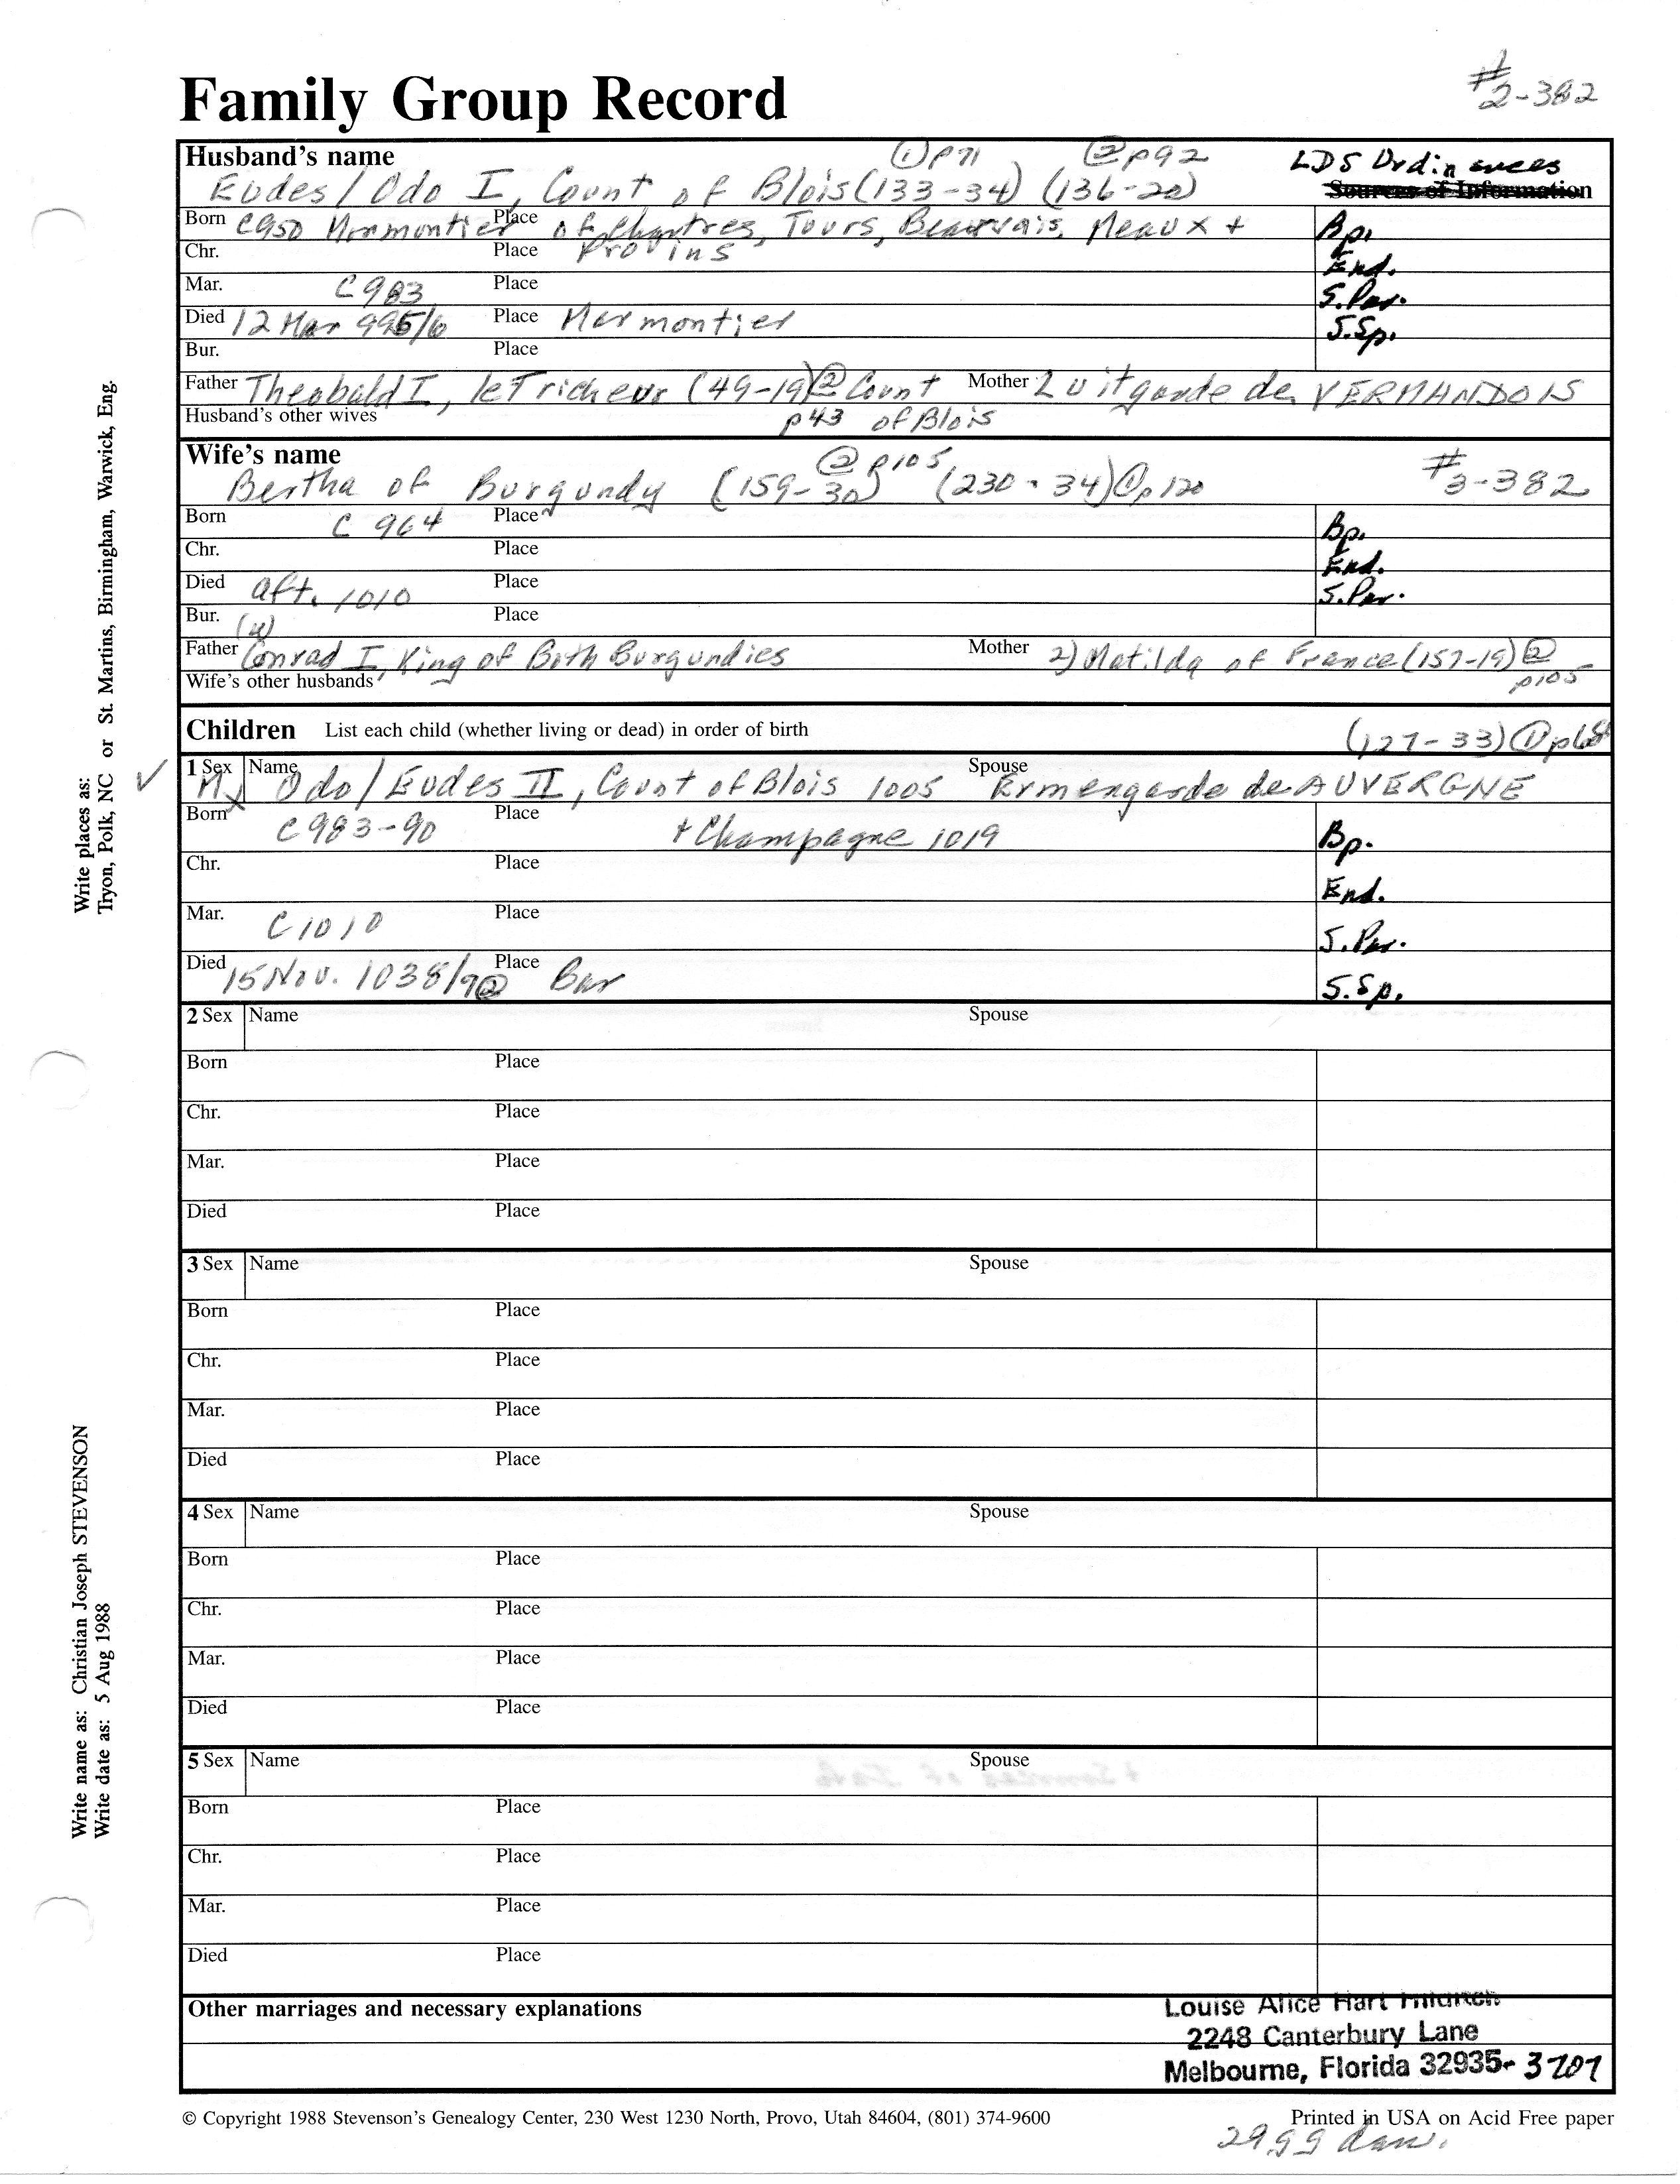 Family Group Record
#2-382
Husband's name ①p71 ②p92 LDS Ordinances
Eudes/Odo I, Count of Blois (133-34) (136-20) Sources of Information
Born C950 Mormontier Place of Chartres, Tours, Beauvais, Meaux + Bp.
Chr. Place Provins End.
Mar. C983 Place S.Par.
Died 12 Mar 995/6 Place Mermontier S.Sp.
Bur. Place
Father Theobald I, le Tricheur (49-19)② Count Mother Luitgarde de VERMANDOIS
Husband's other wives p43 of Blois
Wife's name ②p105 #3-382
Bertha of Burgundy (159-30) (230-34)①p120
Born C 964 Place Bp.
Chr. Place End.
Died aft. 1010 Place S.Par.
Bur. Place
Father Conrad I, King of Both Burgundies Mother 2) Matilda of France (157-19)②
Wife's other husbands p105
Children List each child (whether living or dead) in order of birth (127-33)①p68
1 Sex Name Spouse
M Odo/Eudes II, Count of Blois 1005 Ermengarde de AUVERGNE
Born C983-90 Place + Champagne 1019 Bp.
Chr. Place End.
Mar. C1010 Place S.Par.
Died 15 Nov. 1038/9② Place Bar S.Sp.
2 Sex Name Spouse
Born Place
Chr. Place
Mar. Place
Died Place
3 Sex Name Spouse
Born Place
Chr. Place
Mar. Place
Died Place
4 Sex Name Spouse
Born Place
Chr. Place
Mar. Place
Died Place
5 Sex Name Spouse
Born Place
Chr. Place
Mar. Place
Died Place
Other marriages and necessary explanations
Louise Alice Hart
2248 Canterbury Lane
Melbourne, Florida 32935-3707
© Copyright 1988 Stevenson's Genealogy Center, 230 West 1230 North, Provo, Utah 84604, (801) 374-9600 Printed in USA on Acid Free paper
Write places as:
Tryon, Polk, NC or St. Martins, Birmingham, Warwick, Eng.
Write name as: Christian Joseph STEVENSON
Write date as: 5 Aug 1988